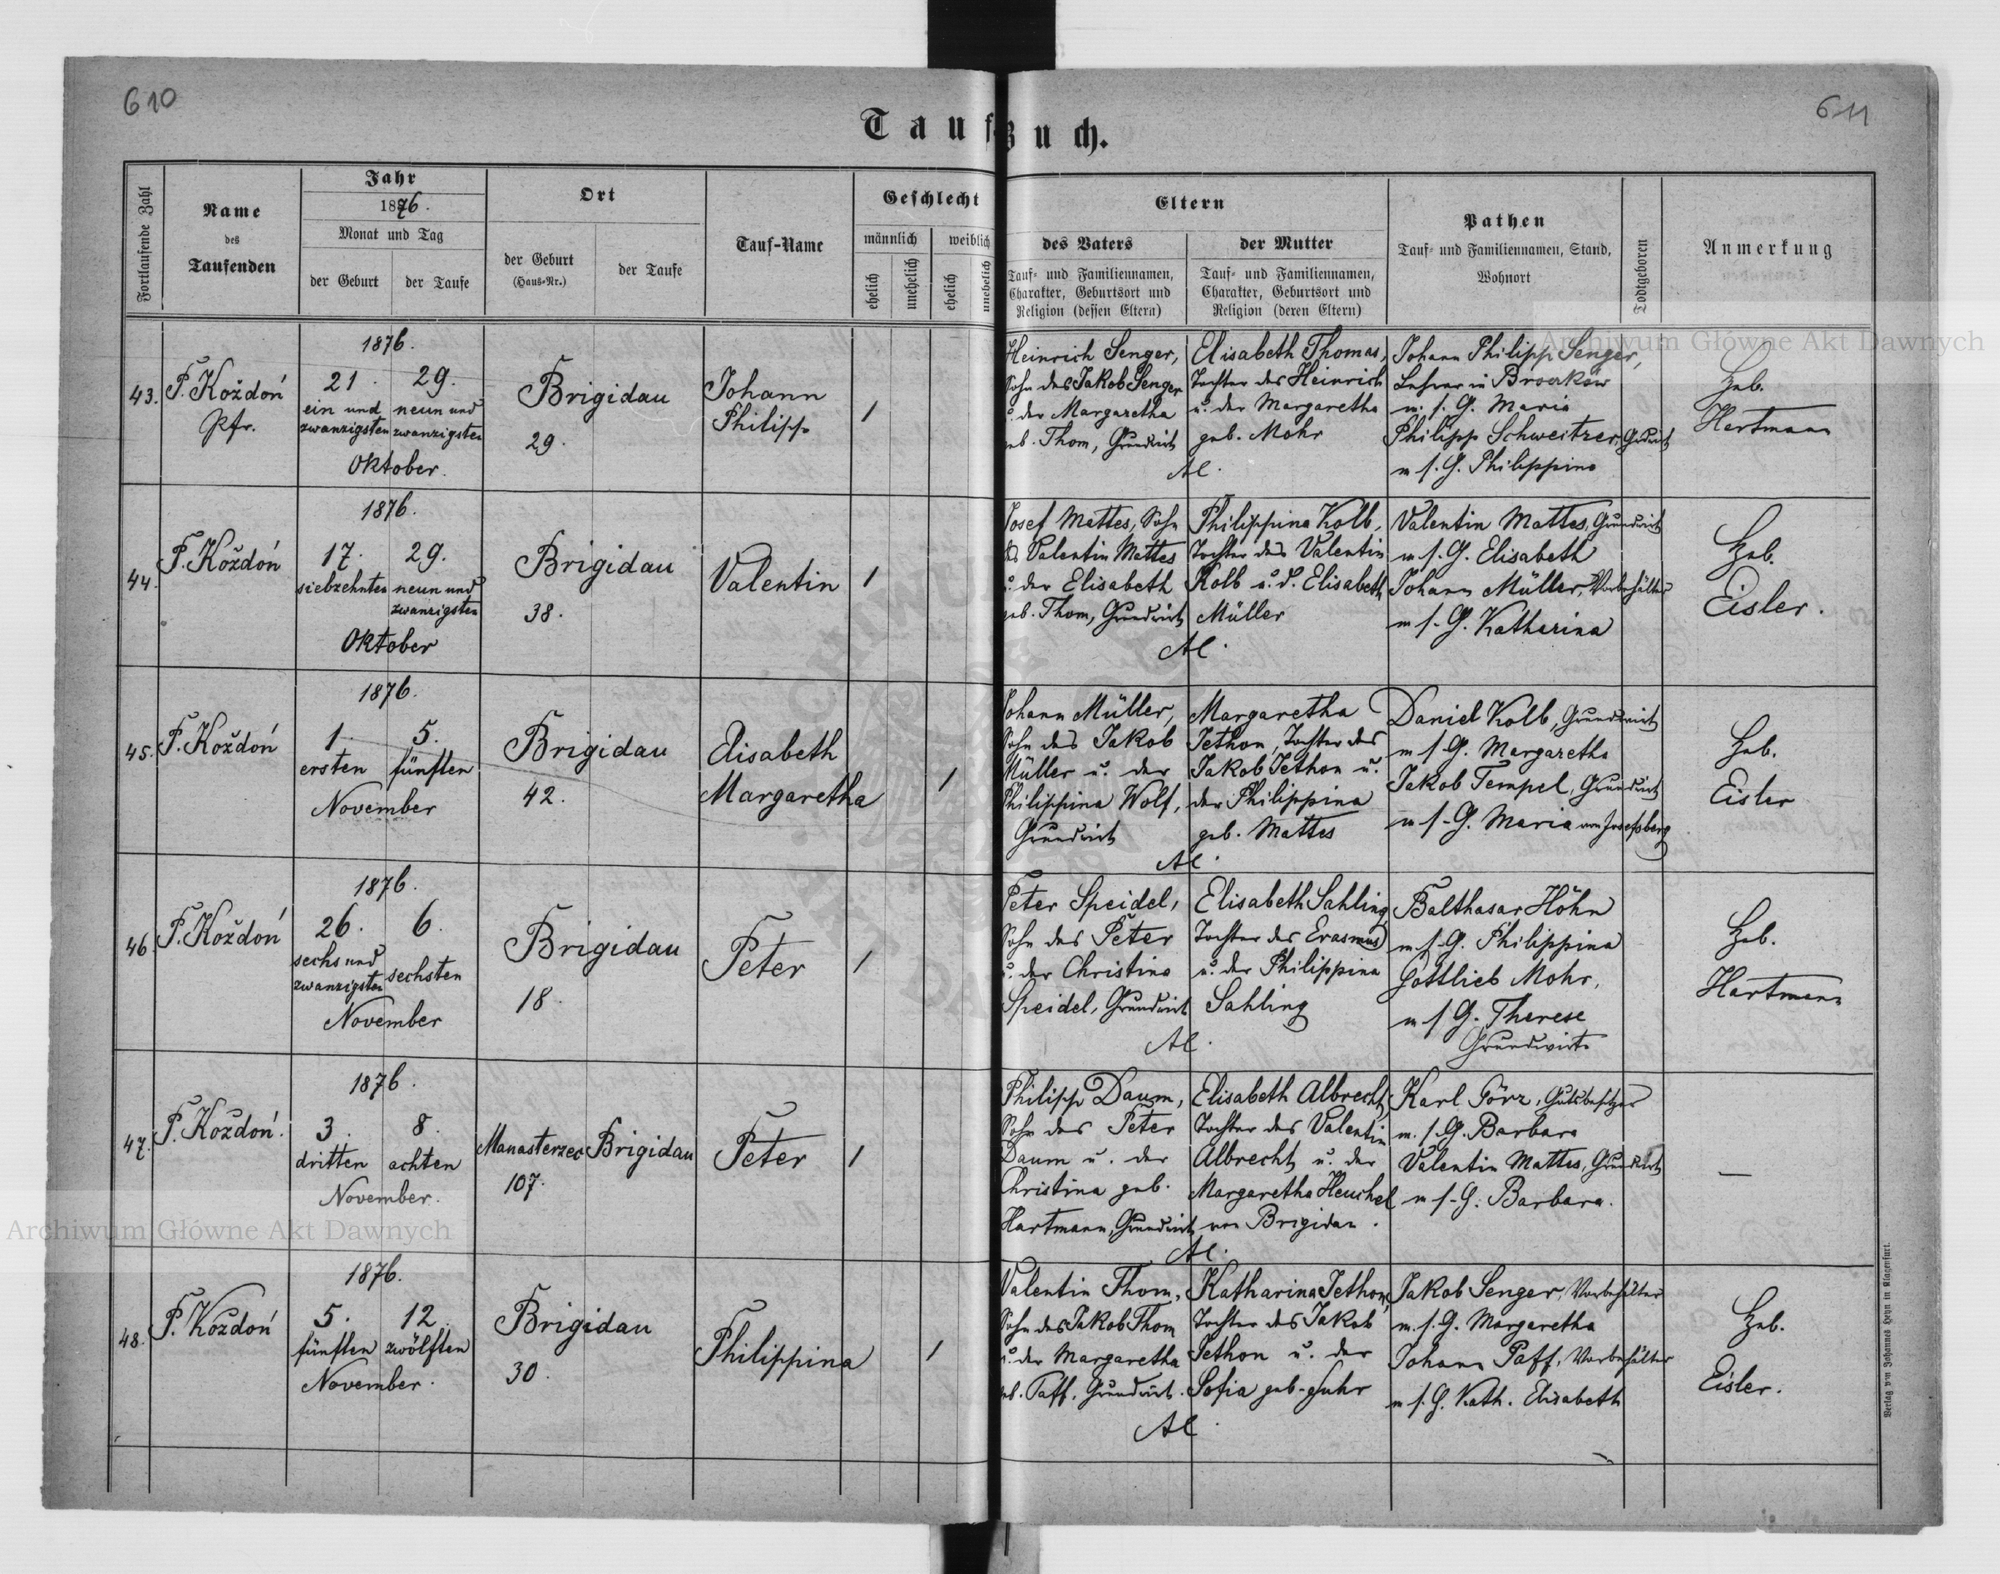 610
611
Taufbuch.
Fortlaufende Zahl
Name
des
Taufenden
Jahr
1876.
Monat und Tag
der Geburt
der Taufe
Ort
der Geburt
(Haus-Nr.)
der Taufe
Tauf-Name
Geschlecht
männlich
weiblich
ehelich
unehelich
ehelich
unehelich
Eltern
des Vaters
Tauf- und Familiennamen,
Charakter, Geburtsort und
Religion (dessen Eltern)
der Mutter
Tauf- und Familiennamen,
Charakter, Geburtsort und
Religion (deren Eltern)
Pathen
Tauf- und Familiennamen, Stand,
Wohnort
Todtgeboren
Anmerkung
43.
P. Koždoń
Pfr.
1876.
21. 29.
ein und neun und
zwanzigsten zwanzigsten
Oktober.
Brigidau
29.
Johann
Philipp
1
Heinrich Senger,
Sohn des Jakob Senger
u. der Margaretha
geb. Thom, Grundwirt
Elisabeth Thomas,
Tochter des Heinrich
u. der Margaretha
geb. Mohr
AC.
Johann Philipp Senger,
Lehrer in
m. s. G. Maria
Philipp Schweitzer,
m s. G. Philippina
Heb.
Hartmann
44.
P. Koždoń
1876.
17. 29.
siebzehnten neun und
zwanzigsten
Oktober
Brigidau
38.
Valentin
1
Josef Mattes, Sohn
des Valentin Mattes
u. der Elisabeth
geb. Thom, Grundwirt
Philippina Kolb,
Tochter des Valentin
Kolb u. d. Elisabeth
Müller
AC.
Valentin Mattes, Grundwirt
m s. G. Elisabeth
Johann Müller, Vorbehälter
m s. G. Katharina
Heb.
Eisler.
45.
P. Koždoń
1876.
1 5.
ersten fünften
November
Brigidau
42.
Elisabeth
Margaretha
1
Johann Müller,
Sohn des Jakob
Müller u. der
Philippina Wolf,
Grundwirt
Margaretha
Jethon, Tochter des
Jakob Jethon u.
der Philippina
geb. Mattes
AC.
Daniel Kolb, Grundwirt
m s. G. Margaretha
Jakob Tempel, Grundwirt
m s. G. Maria von Josefsberg
Heb.
Eisler
46
P. Koždoń
1876.
26. 6.
sechs und
zwanzigsten sechsten
November
Brigidau
18
Peter
1
Peter Speidel,
Sohn des Peter
u. der Christina
Speidel, Grundwirt
Elisabeth Sahling
Tochter des Erasmus
u. der Philippina
Sahling
AC.
Balthasar Höhn
m s. G. Philippina
Gottlieb Mohr,
m s. G. Therese
Grundwirte
Heb.
Hartmann
47.
P. Koždoń.
1876.
3. 8.
dritten achten
November.
Manasterzec
107.
Brigidau
Peter
1
Philipp Daum,
Sohn des Peter
Daum u. der
Christina geb.
Hartmann, Grundwirt
Elisabeth Albrecht,
Tochter des Valentin
Albrecht u. der
Margaretha Heuchel
von Brigidau.
AC.
Karl Görz, Gutsbesitzer
m. s. G. Barbara
Valentin Mattes, Grundwirt
m s. G. Barbara.
—
48.
P. Koždoń
1876.
5. 12.
fünften zwölften
November.
Brigidau
30.
Philippina
1
Valentin Thom,
Sohn des Jakob Thom
u. der Margaretha
geb. Paff, Grundwirt.
Katharina Jethon,
Tochter des Jakob
Jethon u. der
Sofia geb. Huhr
AC.
Jakob Senger, Vorbehälter
m. s. G. Margaretha
Johann Paff, Vorbehälter
m s. G. Kath. Elisabeth
Heb.
Eisler.
Verlag von Johannes Heyn in Klagenfurt.
Archiwum Główne Akt Dawnych
Archiwum Główne Akt Dawnych